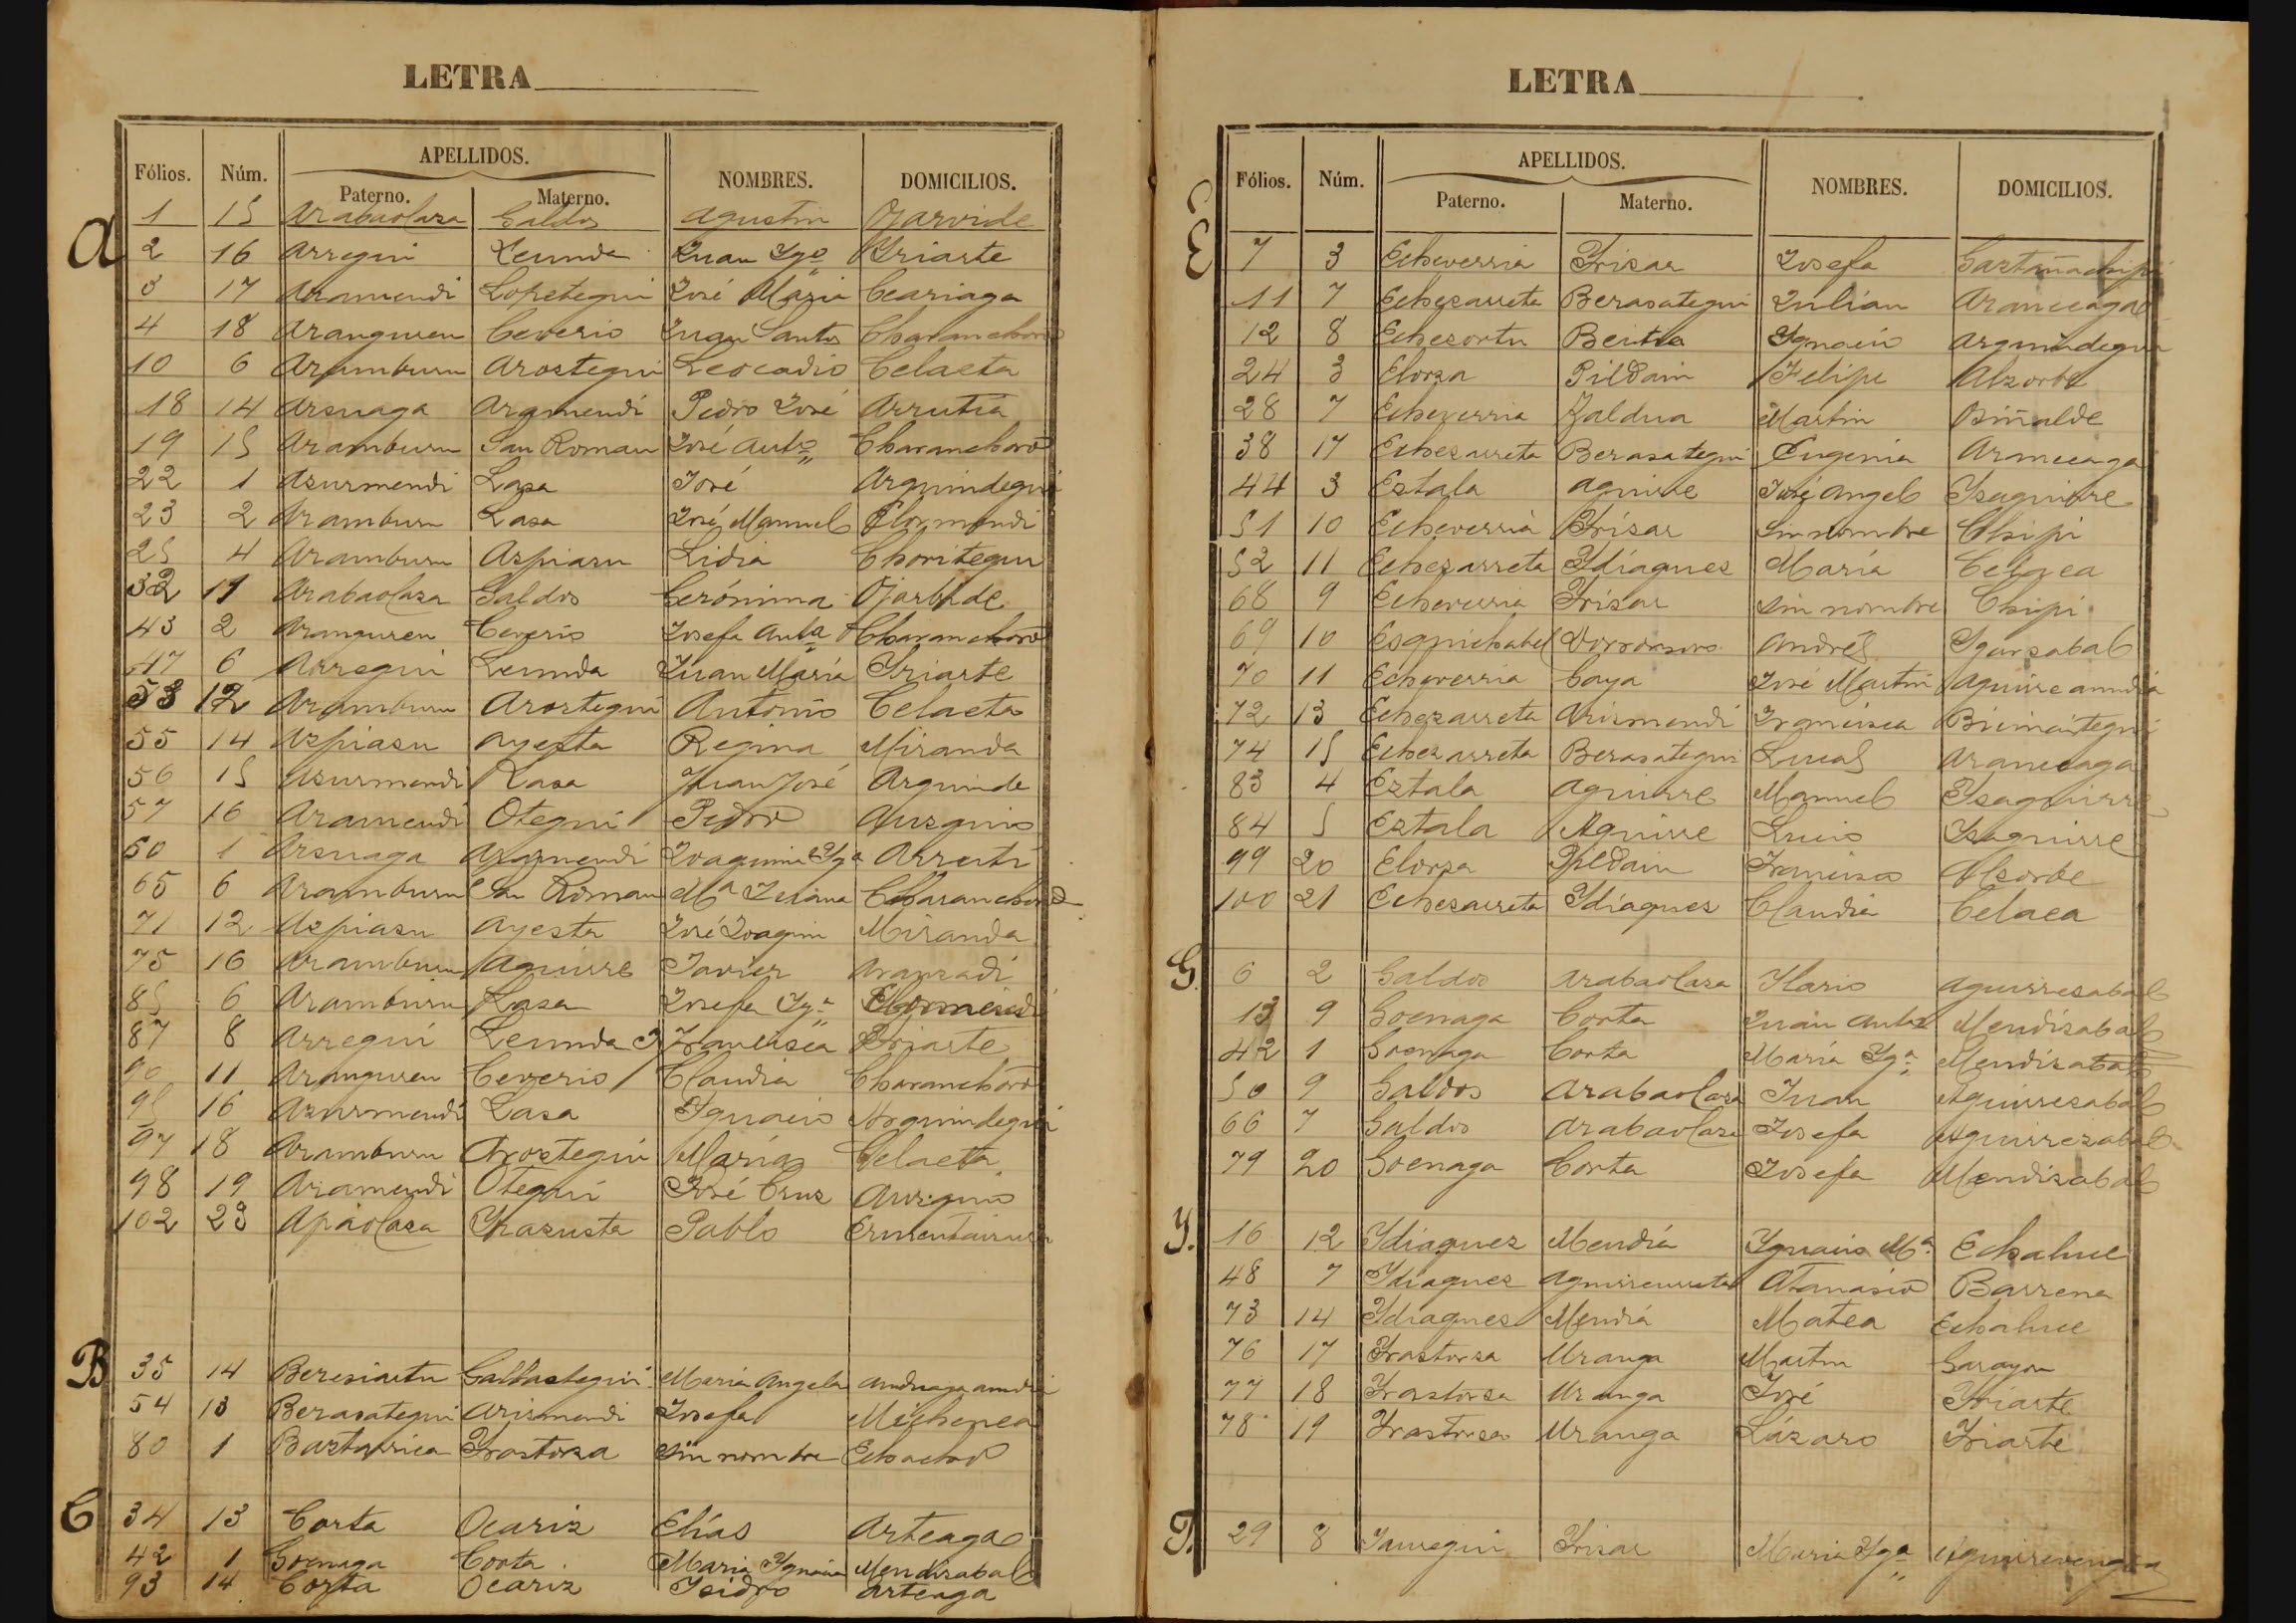 LETRA
Fólios. Núm. APELLIDOS. NOMBRES. DOMICILIOS.
Paterno. Materno.
A
1 15 Arabaolaza Galdos Agustin Ojarvide
2 16 Arregui Leunda Juan Ygo Yriarte
3 17 Aramendi Lopetegui José Maria Ceariaga
4 18 Aranguren Ceverio Juan Santos
10 6 Aramburu Arostegui Leocadio Celaeta
18 14 Arsuaga Aramendi Pedro José Arrutia
19 15 Aramburu San Roman José Anto Charanchoro
22 1 Asurmendi Lasa José Arguindegui
23 2 Aramburu Lasa José Manuel Elormendi
25 4 Aramburu Aspiasu Lidia Choritegui
32 11 Arabaolasa Galdos Gerónima Ojarbide
43 2 Aranguren Ceverio Josefa Anta Charanchoro
47 6 Arregui Leunda Juan María Yriarte
53 12 Aramburu Arostegui Antonio Celaeta
55 14 Aspiasu Ayesta Regina Miranda
56 15 Asurmendi Lasa Juan José Arguinde
57 16 Aramendi Otegui Pedro Ausguio
60 1 Arsuaga Aramendi Joaquina Yga Arruti
65 6 Aramburu San Roman Ma Juana Charanchoro
71 12 Aspiasu Ayesta José Joaquin Miranda
75 16 Aramburu Aguirre Javier Aranzadi
85 6 Aramburu Lasa Josefa Yga Elormendi
87 8 Arregui Leunda Francisca Yriarte
90 11 Aranguren Ceverio Claudia Charanchoro
95 16 Asurmendi Lasa Ygnacio Arguindegui
97 18 Aramburu Arostegui María Celaeta
98 19 Aramendi Otegui José Cruz Ausguio
102 23 Apaolasa Yrasusta Pablo
B
35 14 Beresiartu Galfastegui Maria Angela
54 13 Berasategui Arismendi Josefa Michenea
80 1 Bastarrica Yrastorza Sin nombre Echacho
C
34 13 Corta Ocariz Elías Arteaga
42 1 Goenaga Corta Maria Ygnacia Mendizabal
93 14 Corta Ocariz Ysidro Arteaga
LETRA
Fólios. Núm. APELLIDOS. NOMBRES. DOMICILIOS.
Paterno. Materno.
E
7 3 Echeverria Yrisar Josefa Gaztañachipi
11 7 Echezarreta Berasategui Julián Aranceaga
12 8 Echezortu Beitia Ygnacio Arguindegui
24 3 Elorza Pildain Felipe Alzorbe
28 7 Echeverria Zaldua Martin
38 17 Echezarreta Berasategui Eugenia Aranceaga
44 3 Eztala Aguirre José Angel Ysaguirre
51 10 Echeverria Yrísar Sin nombre Chipi
52 11 Echezarreta Ydíaques María Celaea
68 9 Echeverria Yrísar Sin nombre Chipi
69 10 Esquichabel Dorronsoro Andrés Ygarzabal
70 11 Echeverria Caya José Martin Aguirre
72 13 Echezarreta Arismendi Francisca
74 15 Echezarreta Berasategui Lucas Aranceaga
83 4 Eztala Aguirre Manuel Ysaguirre
84 5 Eztala Aguirre Lucio Ysaguirre
99 20 Elorza Pildain Francisco Alzorbe
100 21 Echezarreta Ydíaques Claudia Celaea
G
6 2 Galdos Arabaolaza Ylario Aguirresabal
13 9 Goenaga Corta Juán Anto Mendisabal
42 1 Goenaga Corta María Yga Mendizabal
50 9 Galdos Arabaolaza Juan Aguirresabal
66 7 Galdos Arabaolaza Josefa Aguirrezabal
79 20 Goenaga Corta Josefa Mendisabal
Y.
16 12 Ydiaquez Mendía Ygnacio Ma Echaluce
48 7 Ydiaquez Aguirreurreta Atanasio Barrena
73 14 Ydiaques Mendiá Matea Echaluce
76 17 Yrastorza Uranga Martin Garayoa
77 18 Yrastorza Uranga José Yriarte
78 19 Yrastorza Uranga Lázaro Yriarte
J.
29 8 Jauregui Yrisar Maria Yga